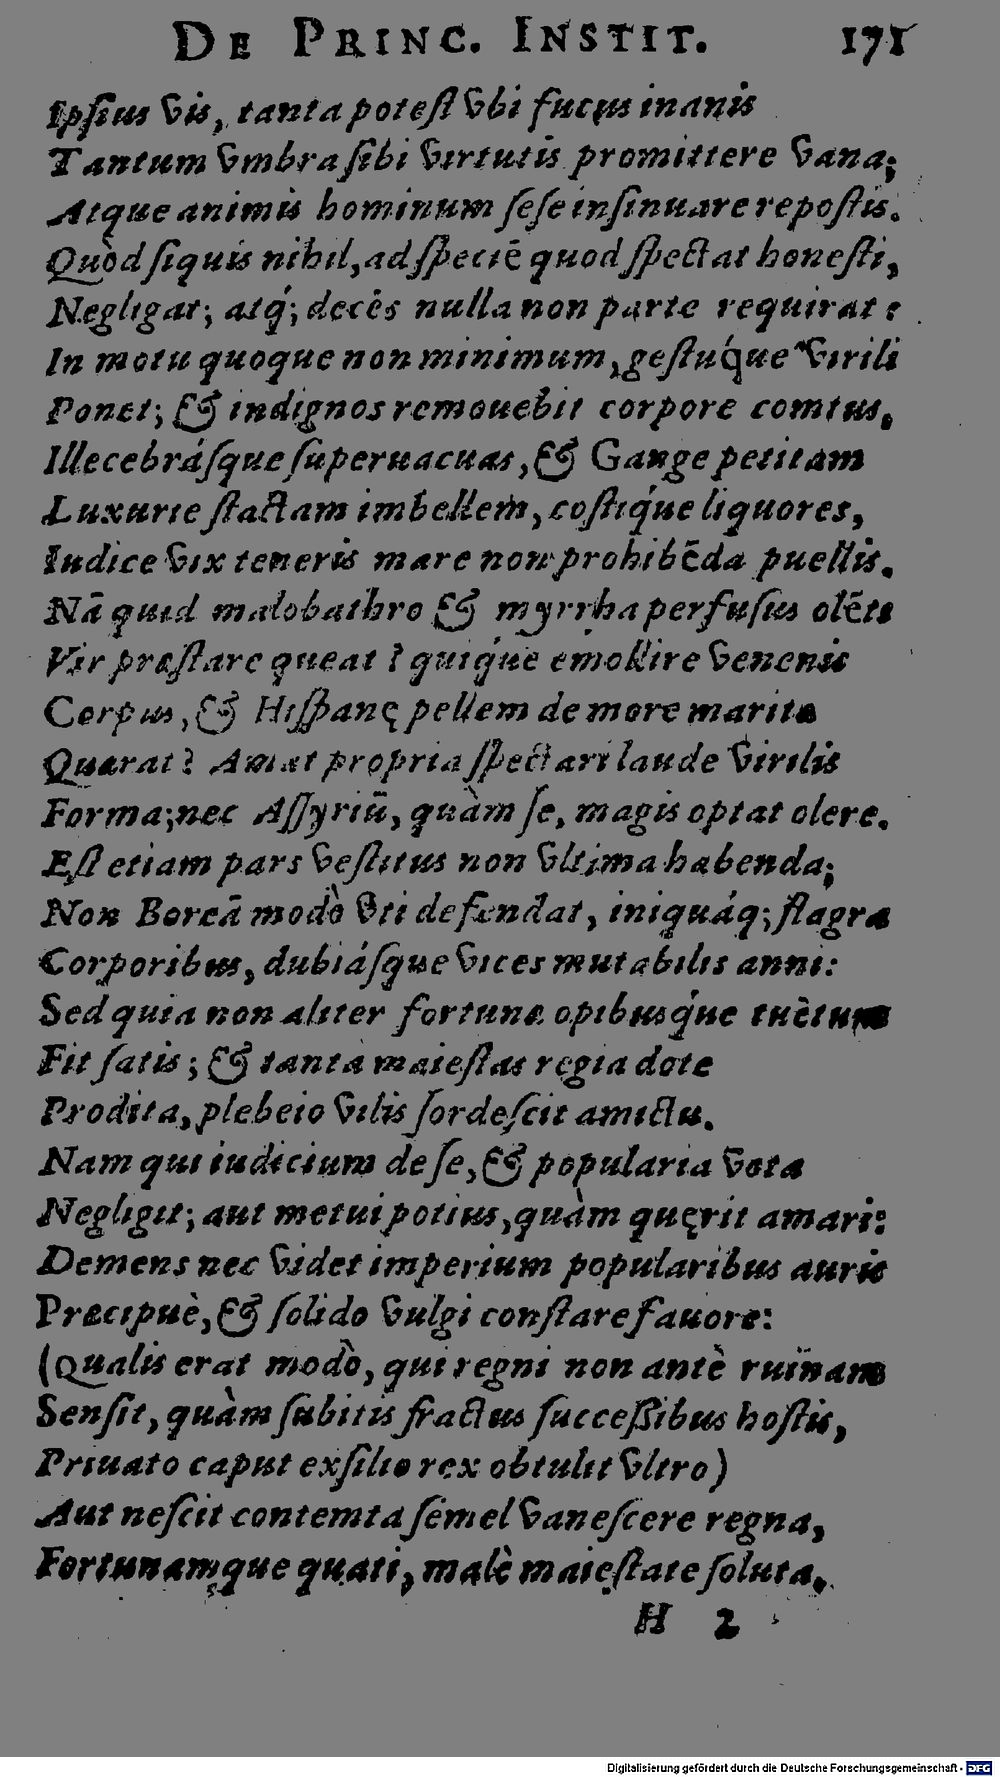 DE PRINC. INSTIT. 171
Ipſius vis, tanta poteſt vbi fucus inanis
Tantum vmbra ſibi virtutis promittere vana;
Atque animis hominum ſeſe inſinuare repoſtis.
Quòd ſiquis nihil, ad ſpeciē quod ſpectat honeſti,
Negligat; atq́; decēs nulla non parte requirat:
In motu quoque non minimum, geſtuq́ue virili
Ponet; & indignos remouebit corpore comtus,
Illecebráſque ſuperuacuas, & Gange petitam
Luxurie ſtactam imbellem, coſtiq́ue liquores,
Iudice vix teneris mare non prohibēda puellis.
Nā quid malobathro & myrrha perfuſus olēte
Vir præſtare queat? quiq́ue emollire venenis
Corpus, & Hiſpanę pellem de more marita
Quærat? Amat propria ſpectari laude virilis
Forma; nec Aſſyriū, quàm ſe, magis optat olere.
Eſt etiam pars veſtitus non vltima habenda;
Non Boreā modò vti defendat, iniquáq; flagra
Corporibus, dubiáſque vices mutabilis anni:
Sed quia non aliter fortunæ opibuſq́ue
Fit ſatis; & tanta maieſtas regia dote
Prodita, plebeio vilis ſordeſcit amictu.
Nam qui iudicium de ſe, & popularia vota
Negligit; aut metui potius, quàm quęrit amari:
Demens nec videt imperium popularibus auris
Præcipuè, & ſolido vulgi conſtare fauore:
(Qualis erat modò, qui regni non antè ruinam
Senſit, quàm ſubitis fractus ſucceßibus hoſtis,
Priuato caput exſilio rex obtulit vltro)
Aut neſcit contemta ſemel vaneſcere regna,
Fortunamque quati, malè maieſtate ſoluta.
H 2
Digitalisierung gefördert durch die Deutsche Forschungsgemeinschaft - DFG